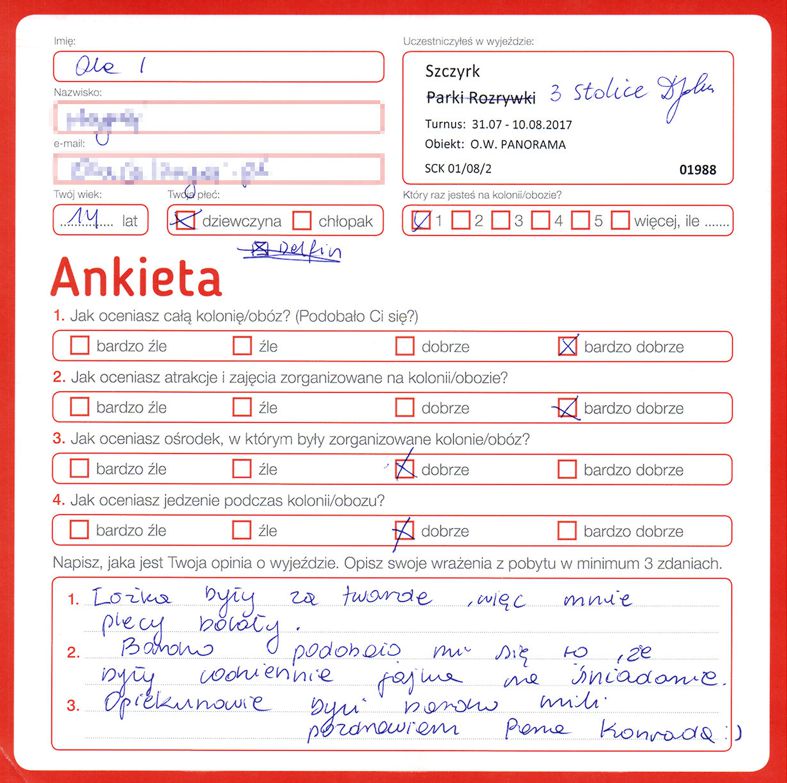 Imię:
Ola
Nazwisko:
e-mail:
Twój wiek:
14 lat
Twoja płeć:
dziewczyna chłopak
Delfin
Uczestniczyłeś w wyjeździe:
Szczyrk
Parki Rozrywki 3 stolice
Turnus: 31.07 - 10.08.2017
Obiekt: O.W. PANORAMA
SCK 01/08/2 01988
Który raz jesteś na kolonii/obozie?
1 2 3 4 5 więcej, ile .......
Ankieta
1. Jak oceniasz całą kolonię/obóz? (Podobało Ci się?)
bardzo źle źle dobrze bardzo dobrze
2. Jak oceniasz atrakcje i zajęcia zorganizowane na kolonii/obozie?
bardzo źle źle dobrze bardzo dobrze
3. Jak oceniasz ośrodek, w którym były zorganizowane kolonie/obóz?
bardzo źle źle dobrze bardzo dobrze
4. Jak oceniasz jedzenie podczas kolonii/obozu?
bardzo źle źle dobrze bardzo dobrze
Napisz, jaka jest Twoja opinia o wyjeździe. Opisz swoje wrażenia z pobytu w minimum 3 zdaniach.
1. Łożka były za twarde ,więc mnie
plecy bolały.
2. Bardzo podobało mi się to ,że
były codziennie jajka na śniadanie.
3. Opiekunowie byli bardzo mili
pozdrawiam Pana Konrada :)